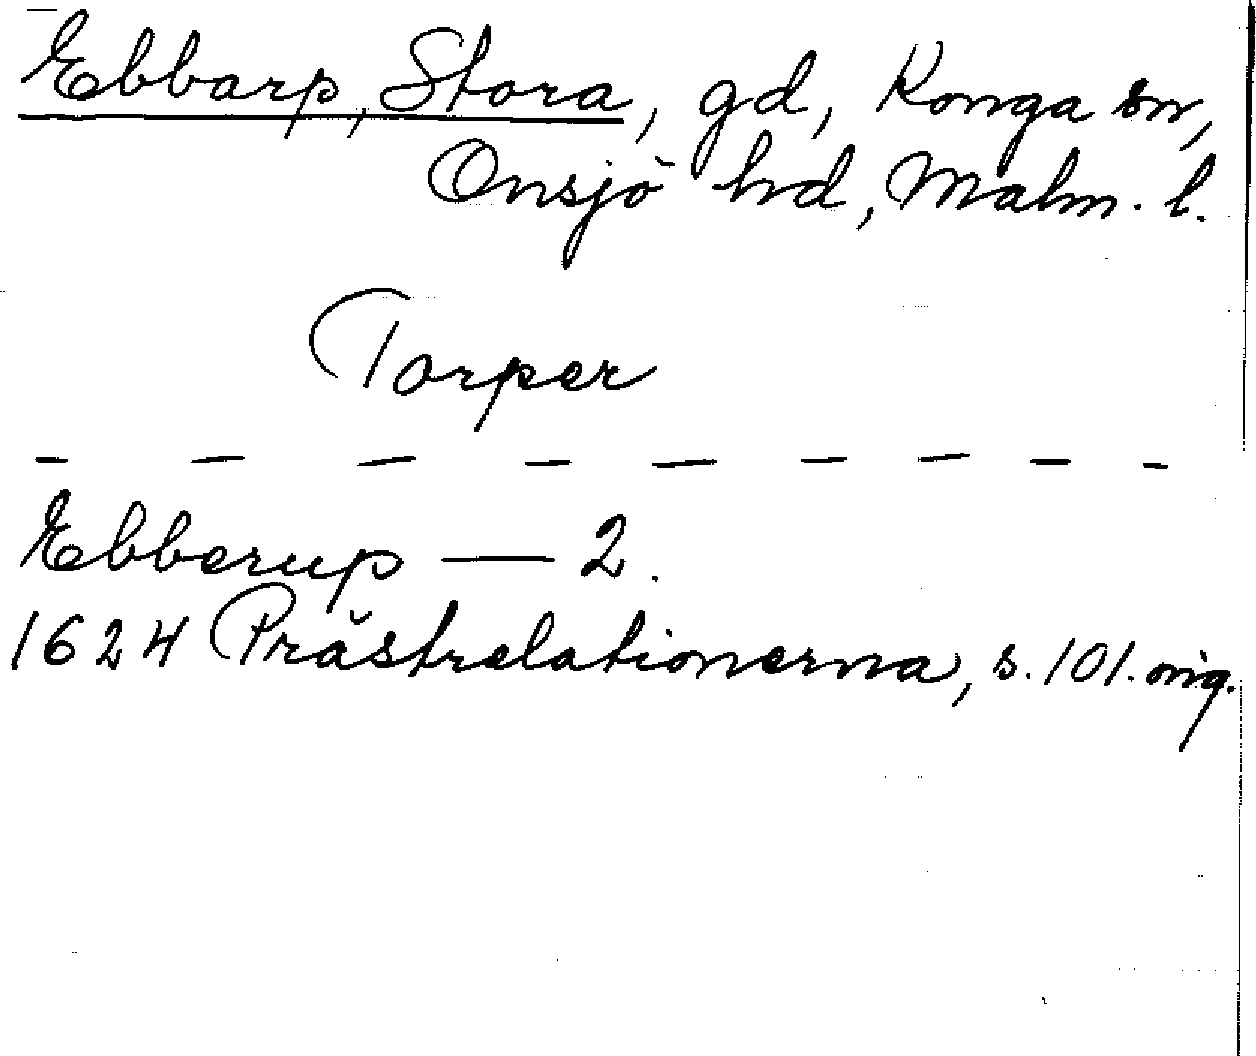 Ebbarp, Stora, gd, Konga sn,
Onsjö hd, Malm. l.
Torper
- - - - - - - - -
Ebberup — 2.
1624 Prästrelationerna, s. 101. orig.